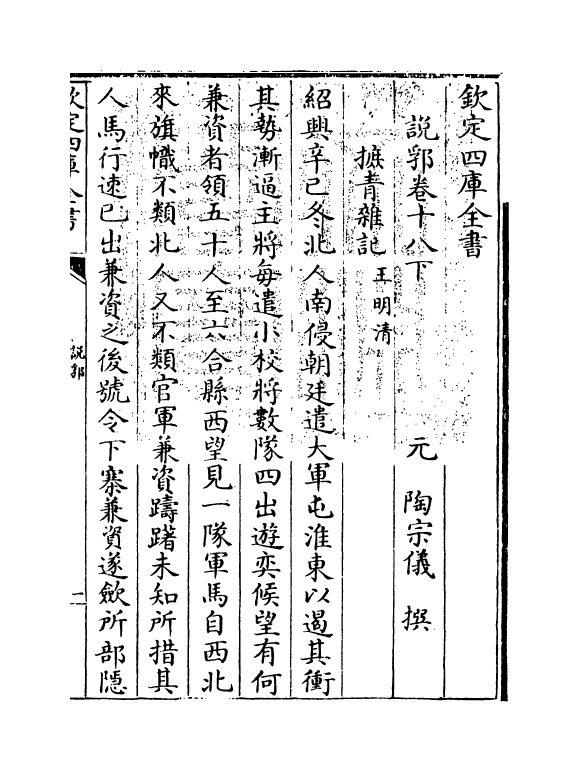 欽定四庫全書
說郛卷十八下
元　陶宗儀　撰
摭青雜記 王明清
紹興辛巳冬北人南侵朝廷遣大軍屯淮東以遏其衝
其勢漸逼主將每遣小校將數隊四出遊奕候望有何
兼資者領五十人至六合縣西望見一隊軍馬自西北
來旗幟不類北人又不類官軍兼資躊躇未知所措其
人馬行速已出兼資之後號令下寨兼資遂歛所部隱
欽定四庫全書
說郛